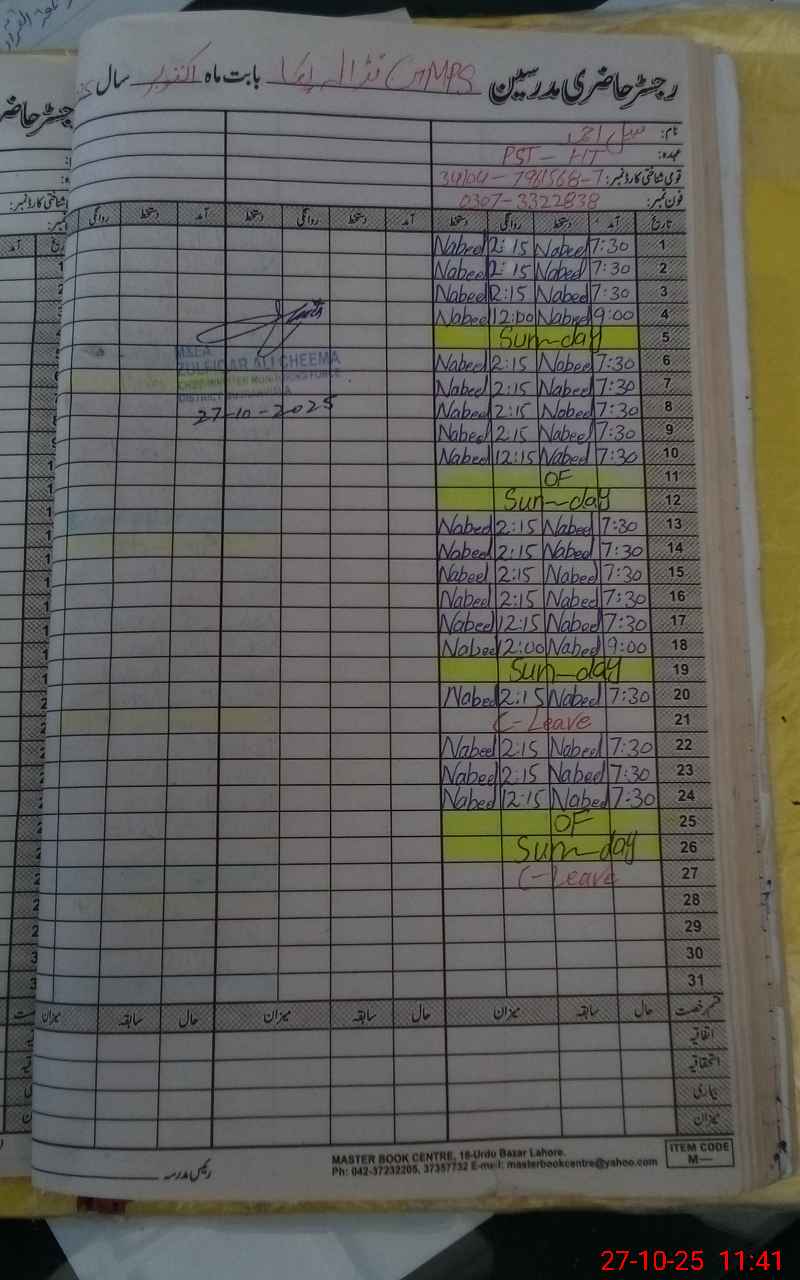 رجسٹر حاضری مدرسین GMPS بابت ماہ اکتوبر سال
نام:
عہدہ: PST - HT
قومی شناختی کارڈ نمبر: 34104-7961568-7
فون نمبر: 0307-3322838
تاریخ آمد دستخط روانگی دستخط آمد دستخط روانگی دستخط آمد دستخط روانگی
1 7:30 Nabeel 2:15 Nabeel
2 7:30 Nabeel 2:15 Nabeel
3 7:30 Nabeel 2:15 Nabeel
4 9:00 Nabeel 12:00 Nabeel
5 Sun-day
6 7:30 Nabeel 2:15 Nabeel
7 7:30 Nabeel 2:15 Nabeel
8 7:30 Nabeel 2:15 Nabeel
9 7:30 Nabeel 2:15 Nabeel
10 7:30 Nabeel 12:15 Nabeel
11 OF
12 Sun-day
13 7:30 Nabeel 2:15 Nabeel
14 7:30 Nabeel 2:15 Nabeel
15 7:30 Nabeel 2:15 Nabeel
16 7:30 Nabeel 2:15 Nabeel
17 7:30 Nabeel 12:15 Nabeel
18 9:00 Nabeel 12:00 Nabeel
19 Sun-day
20 7:30 Nabeel 2:15 Nabeel
21 C-Leave
22 7:30 Nabeel 2:15 Nabeel
23 7:30 Nabeel 2:15 Nabeel
24 7:30 Nabeel 12:15 Nabeel
25 OF
26 Sun-day
27 C-Leave
28
29
30
31
M&EA
ZULFIQAR ALI CHEEMA
CHIEF MINISTER MONITORING FORCE
DISTRICT
27-10-2025
قسم رخصت حال سابقہ میزان حال سابقہ میزان حال سابقہ میزان
اتفاقیہ
استحقاقیہ
بیماری
میزان
رئیس مدرسہ
MASTER BOOK CENTRE, 16-Urdu Bazar Lahore.
Ph: 042-37232205, 37357732 E-mail: masterbookcentre@yahoo.com
ITEM CODE
M—
27-10-25 11:41